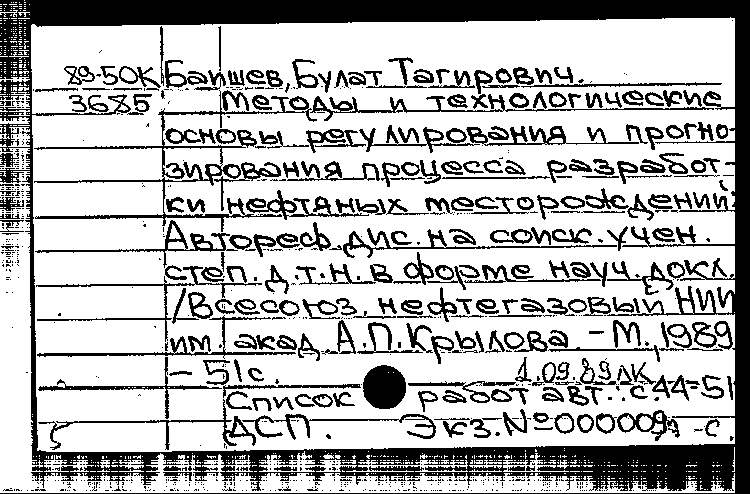 89-50К Баишев, Булат Тагирович.
3685 Методы и технологические
основы регулирования и прогно-
зирования процесса разработ-
ки нефтяных месторождений:
Автореф. дис. на соиск. учен.
степ. д.т.н. в форме науч. докл.
/Всесоюз. нефтегазовый НИИ
им. акад. А.П. Крылова. - М., 1989
- 51 с.
1.09.89 ЛК
Список работ авт.: с. 44-51
5 ДСП. Экз. №000009